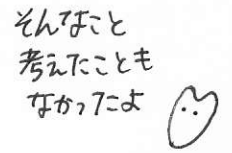 そんなこと
考えたことも
なかったよ